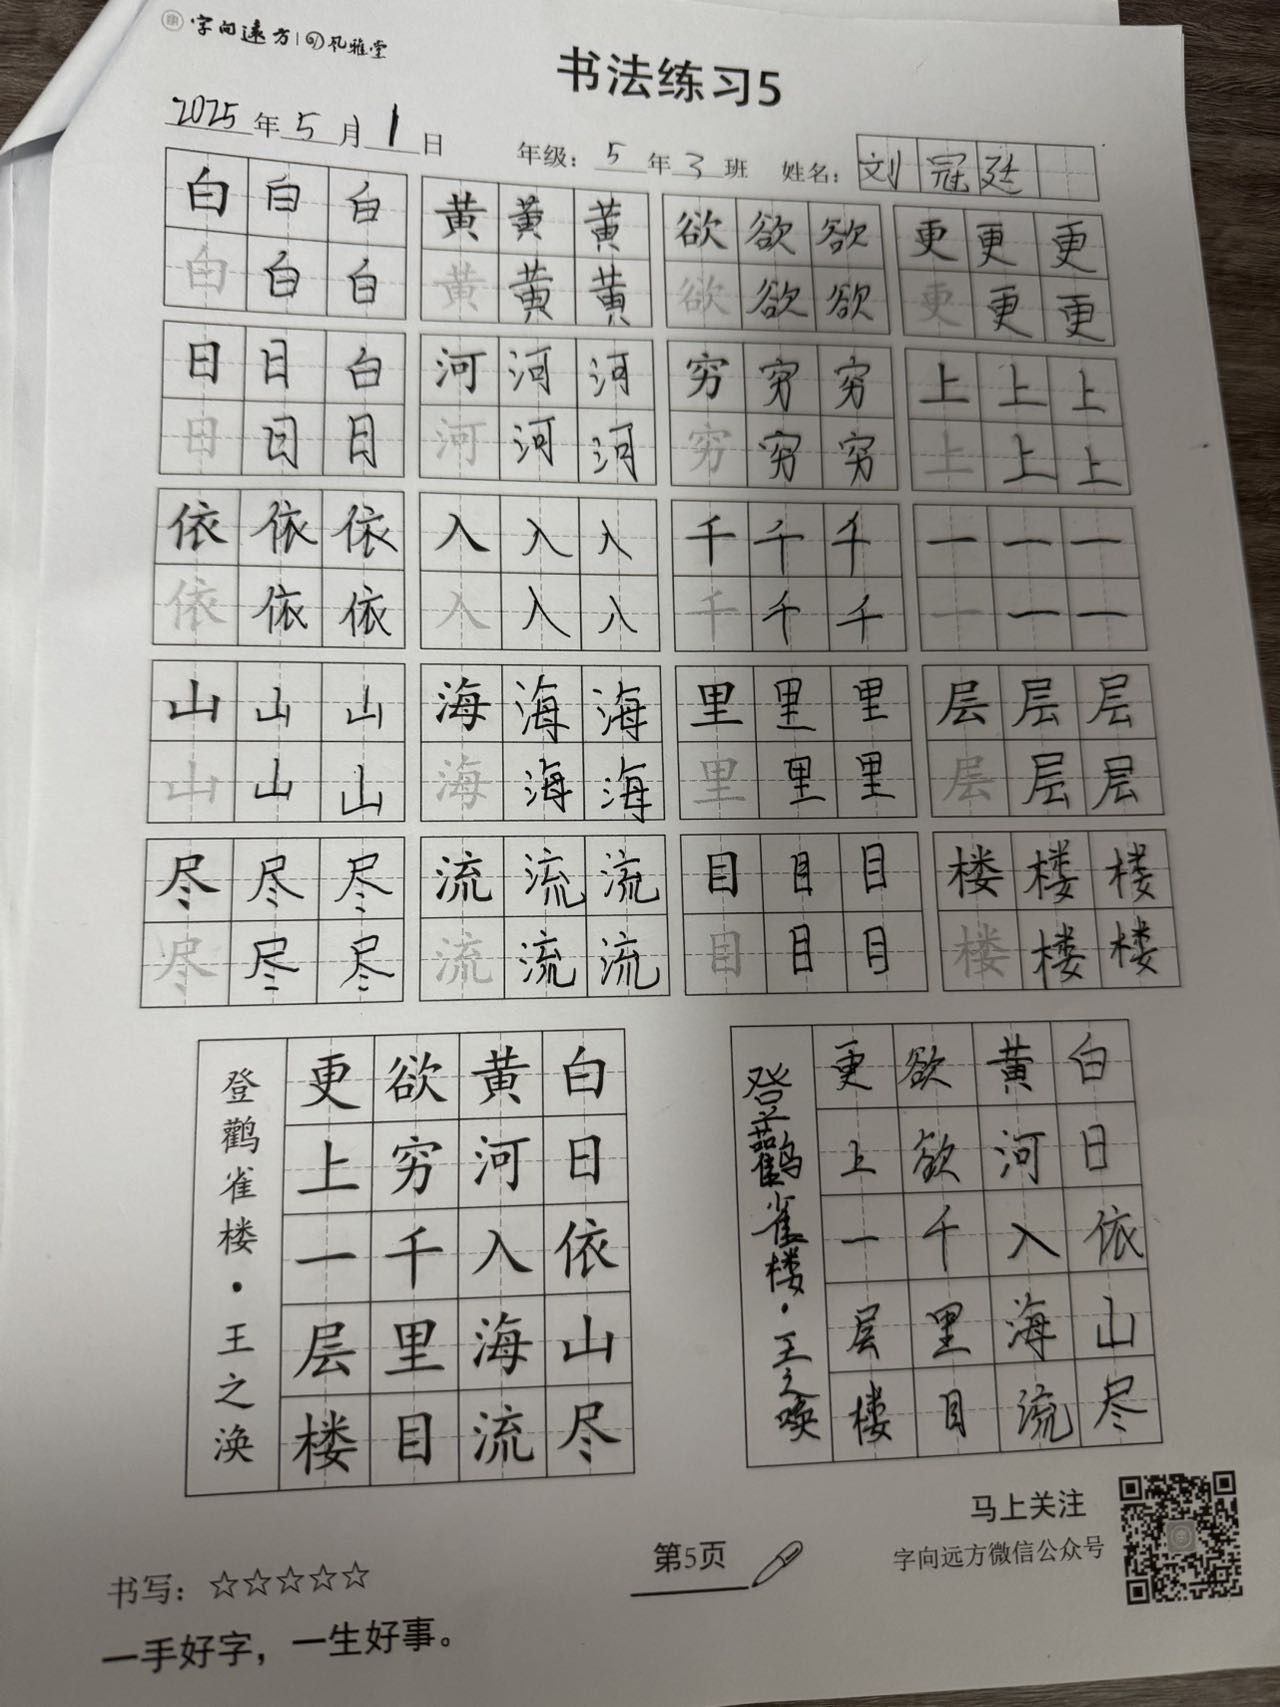 字向远方 风雅堂
书法练习5
2025年5月1日 年级：5年3班 姓名：刘冠廷
白白白 黄黄黄 欲欲欲 更更更
白白白 黄黄黄 欲欲欲 更更更
日日白 河河河 穷穷穷 上上上
日日日 河河河 穷穷穷 上上上
依依依 入入入 千千千 一一一
依依依 入入入 千千千 一一一
山山山 海海海 里里里 层层层
山山山 海海海 里里里 层层层
尽尽尽 流流流 目目目 楼楼楼
尽尽尽 流流流 目目目 楼楼楼
白日依山尽
黄河入海流
欲穷千里目
更上一层楼
登鹳雀楼·王之涣
白日依山尽
黄河入海流
欲欲千里目
更上一层楼
登鹳雀楼·王之唤
马上关注
字向远方微信公众号
第5页
书写：☆☆☆☆☆
一手好字，一生好事。